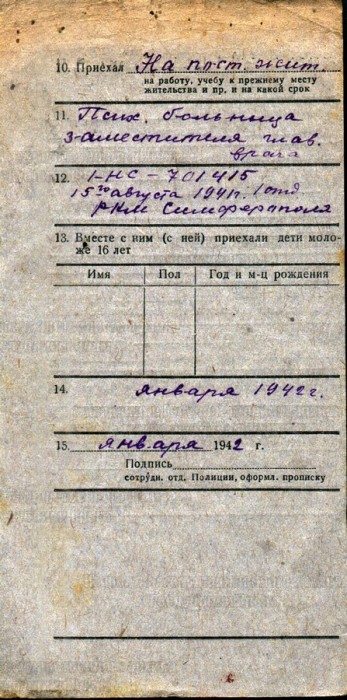 10. Приехал На пост. жит.
на работу, учебу к прежнему месту
жительства и пр. и на какой срок
11. Псих. больница
заместителя глав.
врача
12. 1-НС – 701415
15го августа 1941г. 1 отд
РКМ Симферополя
13. Вместе с ним (с ней) приехали дети моло-
же 16 лет
Имя Пол Год и м-ц рождения
14. января 1942 г.
15. января 1942 г.
Подпись
сотрудн. отд. Полиции, оформл. прописку